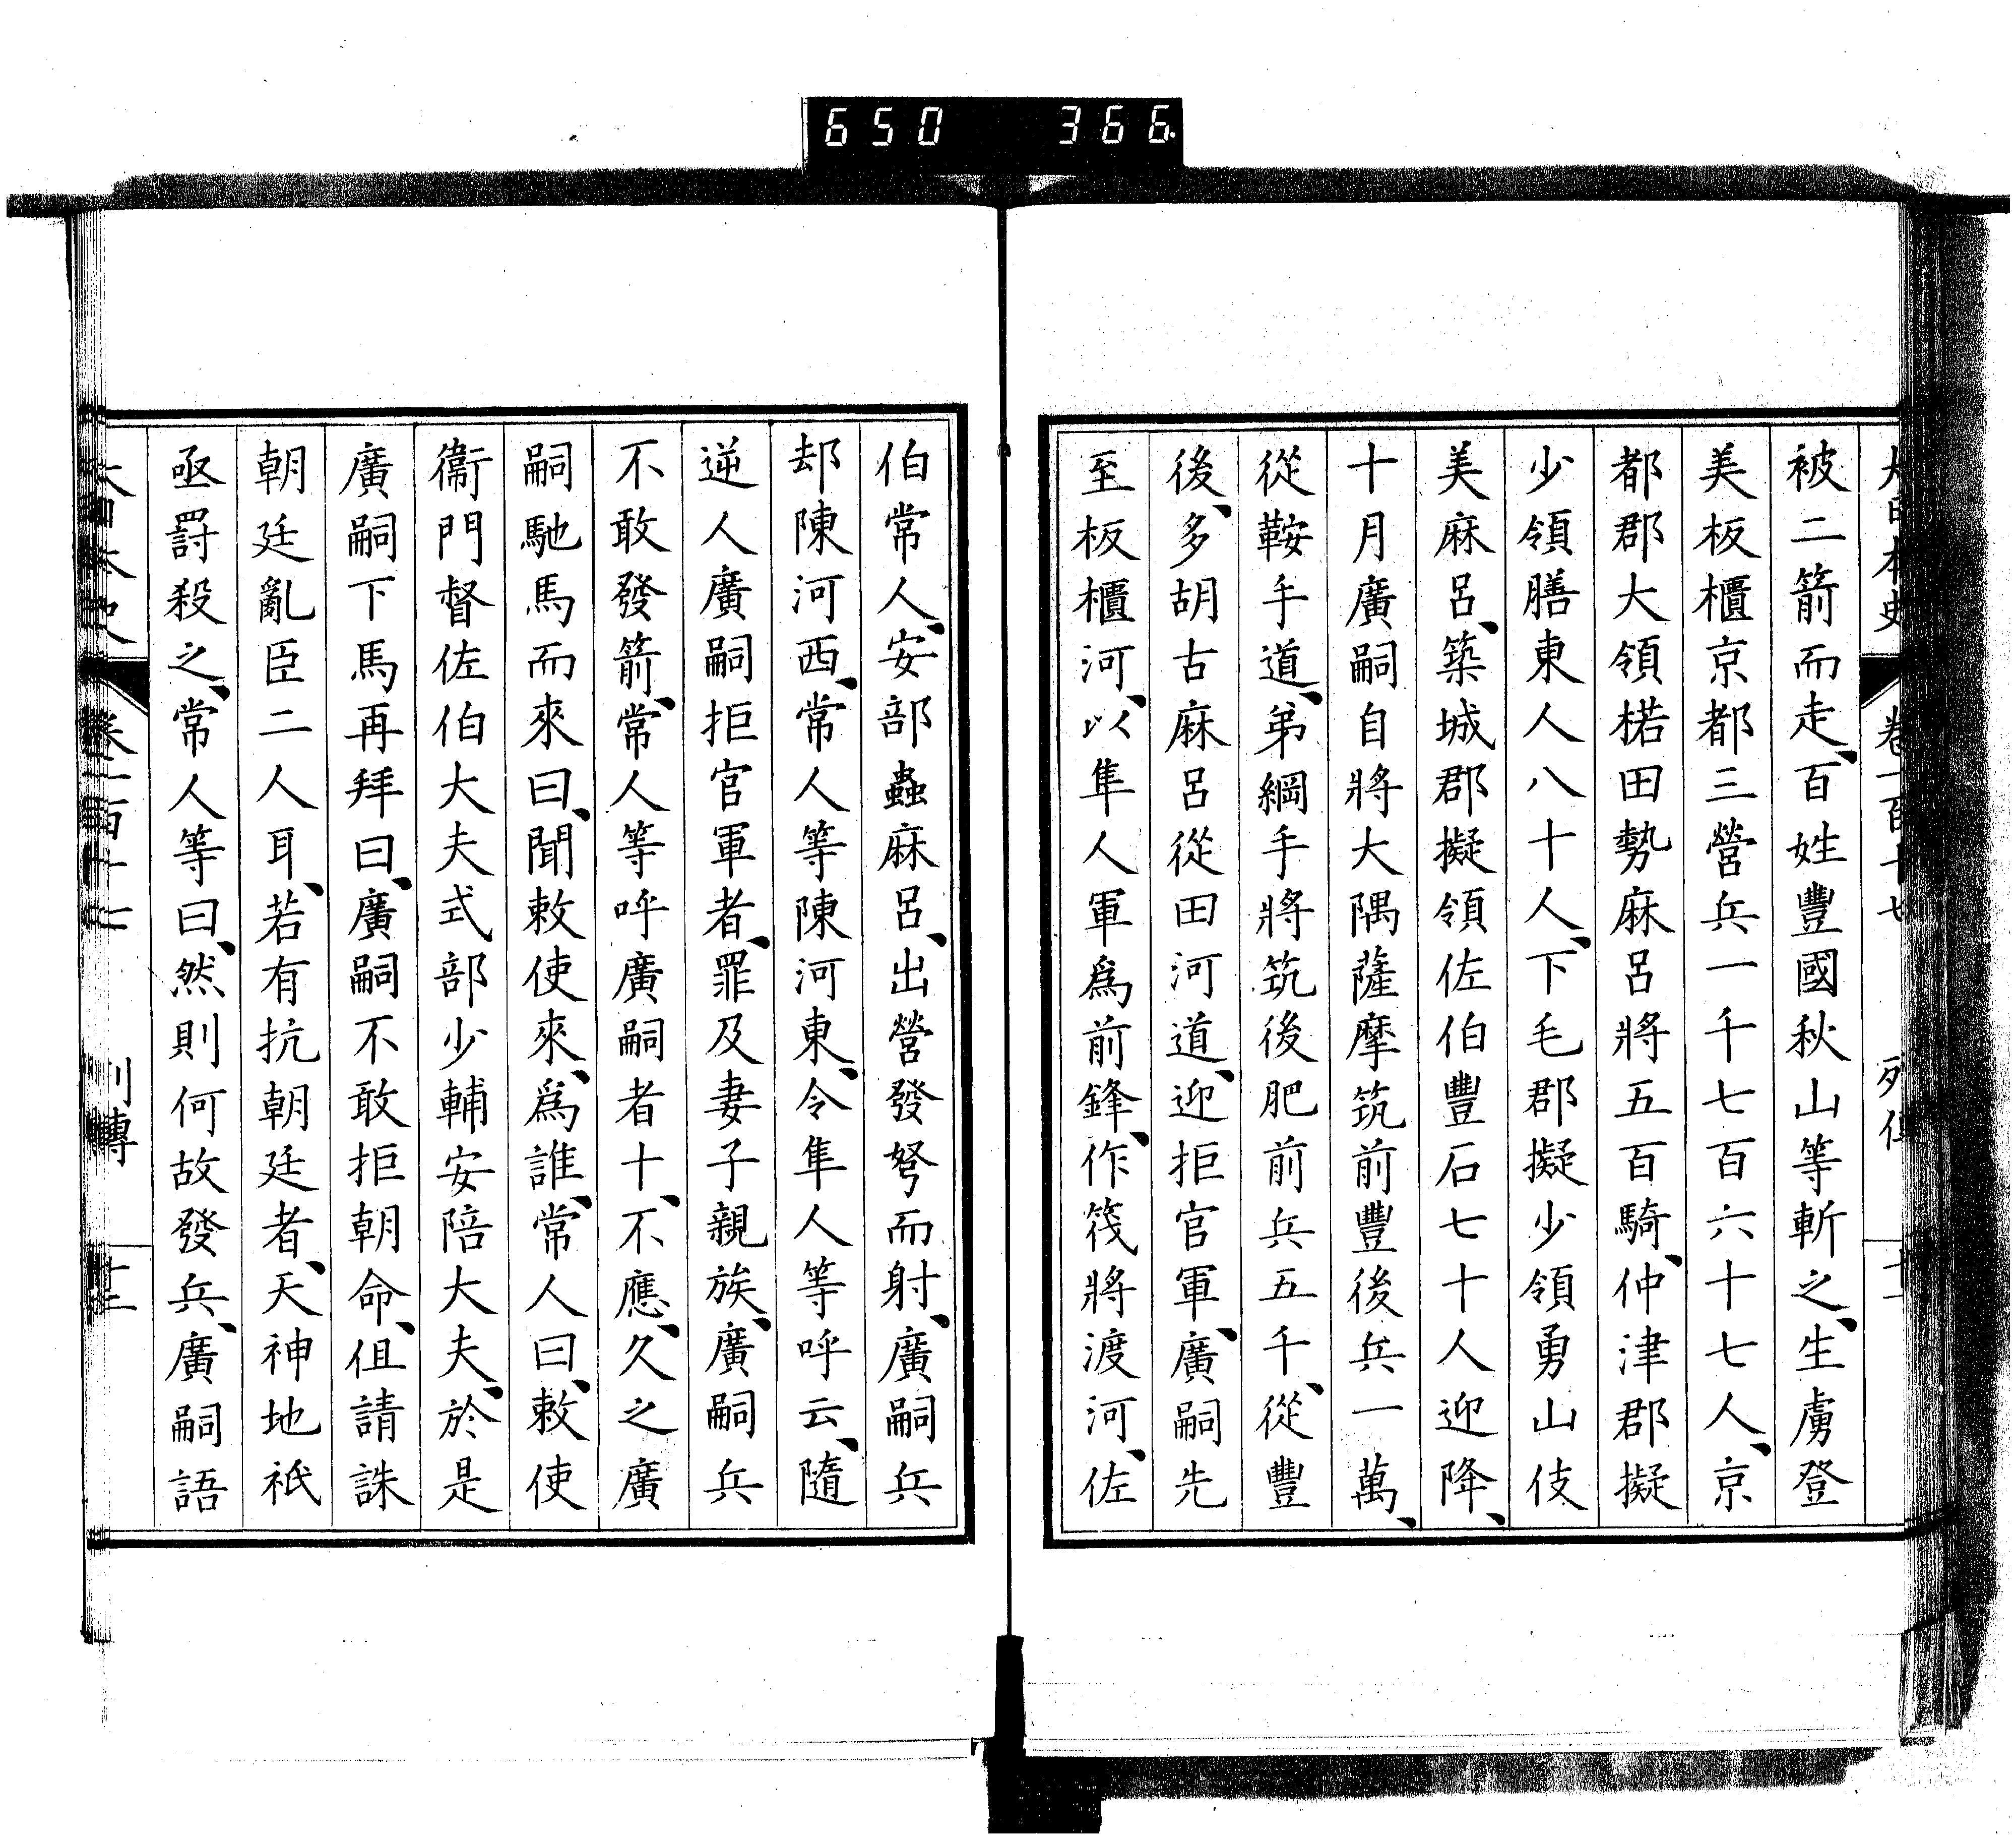 650 366
被二箭而走、百姓豐國秋山等斬之、生虜登
美板櫃京都三營兵一千七百六十七人、京
都郡大領楉田勢麻呂將五百騎、仲津郡擬
少領膳東人八十人、下毛郡擬少領勇山伎
美麻呂、築城郡擬領佐伯豐石七十人迎降、
十月廣嗣自將大隅薩摩筑前豐後兵一萬、
從鞍手道、弟綱手將筑後肥前兵五千、從豐
後、多胡古麻呂從田河道、迎拒官軍、廣嗣先
至板櫃河、以隼人軍爲前鋒、作筏將渡河、佐
伯常人、安部蟲麻呂、出營發弩而射、廣嗣兵
却陳河西、常人等陳河東、令隼人等呼云、隨
逆人廣嗣拒官軍者、罪及妻子親族、廣嗣兵
不敢發箭、常人等呼廣嗣者十、不應、久之廣
嗣馳馬而來曰、聞敕使來、爲誰、常人曰、敕使
衞門督佐伯大夫式部少輔安陪大夫、於是
廣嗣下馬再拜曰、廣嗣不敢拒朝命、但請誅
朝廷亂臣二人耳、若有抗朝廷者、天神地祇
亟罸殺之、常人等曰、然則何故發兵、廣嗣語